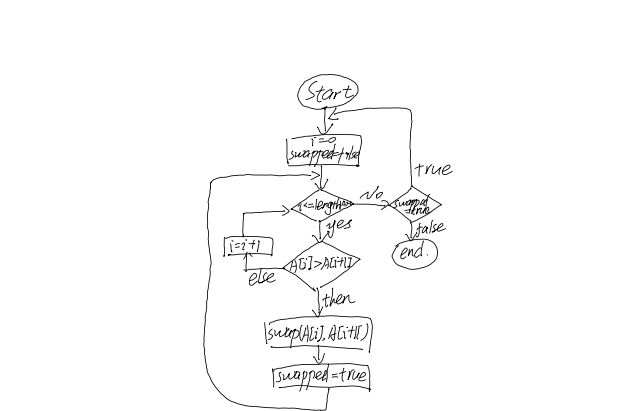 Start
i=0
swapped=false
true
No
swapped
=true
yes
false
end.
i=i+1
A[i]>A[i+1]
else
then
swap(A[i], A[i+1])
swapped=true